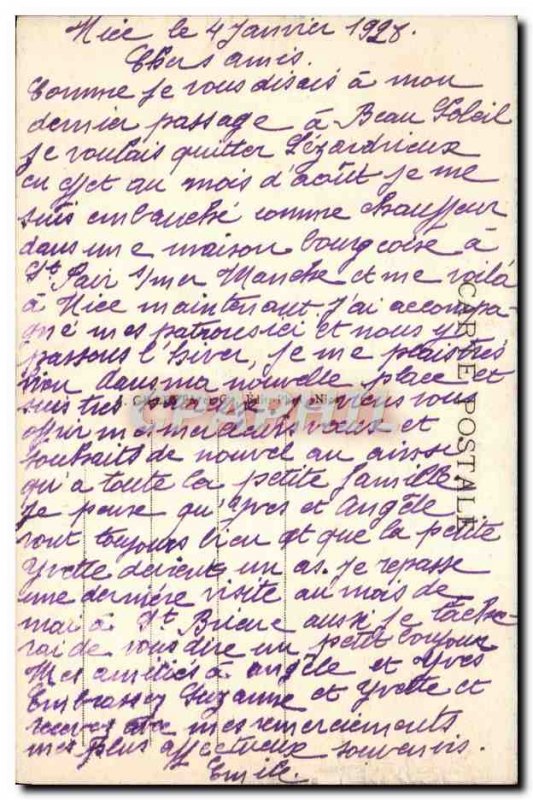 Nice le 4 Janvier 1928.
Chers amis.
Comme je vous disais à mon
dernier passage à Beau Soleil
je voulais quitter Lézardrieux
en effet au mois d'août je me
suis embauché comme chauffeur
dans une maison bourgeoise à
St Pair s/mer Manche et me voilà
à Nice maintenant. j'ai accompa-
gné mes patrons ici et nous y
passons l'hiver, je me plais très
bien dans ma nouvelle place et
suis très vous
offrir mes meilleurs vœux et
souhaits de nouvel an ainsi
qu'a toute la petite famille.
Je pense qu'Yves et Angèle
vont toujours bien et que la petite
Yvette devient un as. je repasse
une dernière visite au mois de
mai à St Brieuc aussi je tâche-
rai de vous dire un petit bonjour
Mes amitiés à Angèle et Yves
Embrassez Suzanne et Yvette et
recevez avec mes remerciements
mes plus affectueux souvenirs.
Emile.
CARTE POSTALE
CPARHIL